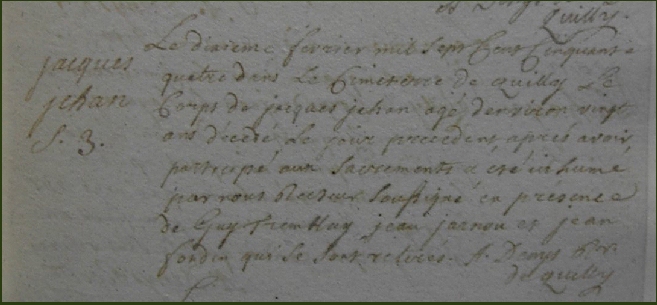 Quilly.
jacques
jehan
S. 3.
Le dixieme fevrier mil sept Cent Cinquante
quatre dans Le Cimetierre de Quilly Le
Corps de jacques jehan agé denviron vingt
ans decede Le jour precedent apres avoir
participé aux Sacrements a été inhumé
par nous Recteur Soussigné en présence
de Guy Tremblay jean jarnou et jean
qui se sont retirés. A. Denys Rr.
de Quilly